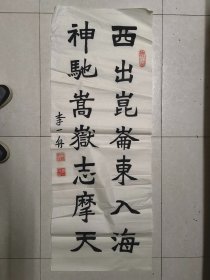 西出崑崙東入海
神馳嵩嶽志摩天